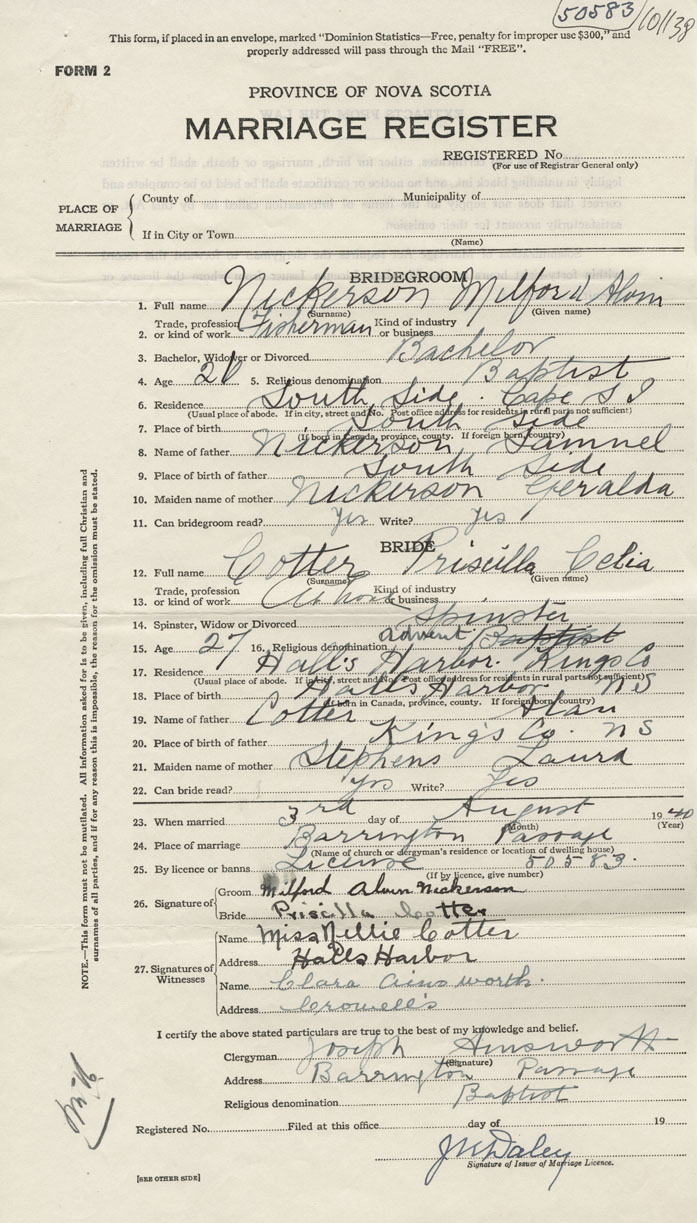 50583
101138
This form, if placed in an envelope, marked "Dominion Statistics—Free, penalty for improper use $300," and
properly addressed will pass through the Mail "FREE".
FORM 2
PROVINCE OF NOVA SCOTIA
MARRIAGE REGISTER
REGISTERED No.
(For use of Registrar General only)
PLACE OF MARRIAGE
County of Municipality of
If in City or Town
(Name)
BRIDEGROOM
1. Full name Nickerson Milford Alvin
(Surname) (Given name)
Trade, profession Kind of industry
2. or kind of work Fisherman or business
3. Bachelor, Widower or Divorced Bachelor
4. Age 5. Religious denomination Baptist
6. Residence South Side. Cape S I
(Usual place of abode. If in city, street and No. Post office address for residents in rural parts not sufficient)
7. Place of birth South Side
(If born in Canada, province, county. If foreign born, country)
8. Name of father Nickerson Samuel
9. Place of birth of father South Side
10. Maiden name of mother Nickerson Geralda
11. Can bridegroom read? Yes Write? Yes
BRIDE
12. Full name Cotter Priscilla Celia
(Surname) (Given name)
Trade, profession Kind of industry
13. or kind of work At home or business
14. Spinster, Widow or Divorced Spinster
15. Age 27 16. Religious denomination advent Baptist
17. Residence Hall's Harbor. Kings Co
(Usual place of abode. If in city, street and No. Post office address for residents in rural parts not sufficient)
18. Place of birth Halls Harbor. N S
(If born in Canada, province, county. If foreign born, country)
19. Name of father Cotter Alan
20. Place of birth of father King's Co. N S
21. Maiden name of mother Stephens Laura
22. Can bride read? Yes Write? Yes
23. When married 3rd day of August 1940
(Month) (Year)
24. Place of marriage Barrington Passage
(Name of church or clergyman's residence or location of dwelling house)
25. By licence or banns License 50583.
(If by licence, give number)
26. Signature of
Groom Milford Alvin Nickerson
Bride Priscilla Cotter
27. Signatures of Witnesses
Name Miss Nellie Cotter
Address Halls Harbor
Name Clara Ainsworth.
Address Crowell's
I certify the above stated particulars are true to the best of my knowledge and belief.
Clergyman Joseph Ainsworth
(Signature)
Address Barrington Passage
Religious denomination Baptist
Registered No. Filed at this office day of 19
J M Daley
Signature of Issuer of Marriage Licence.
[SEE OTHER SIDE]
NOTE.—This form must not be mutilated. All information asked for is to be given, including full Christian and
surnames of all parties, and if for any reason this is impossible, the reason for the omission must be stated.